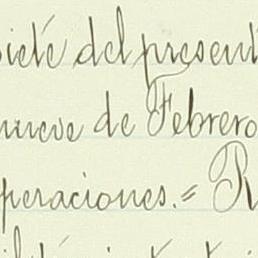 siete del present
nueve de Febrero
peraciones.= R